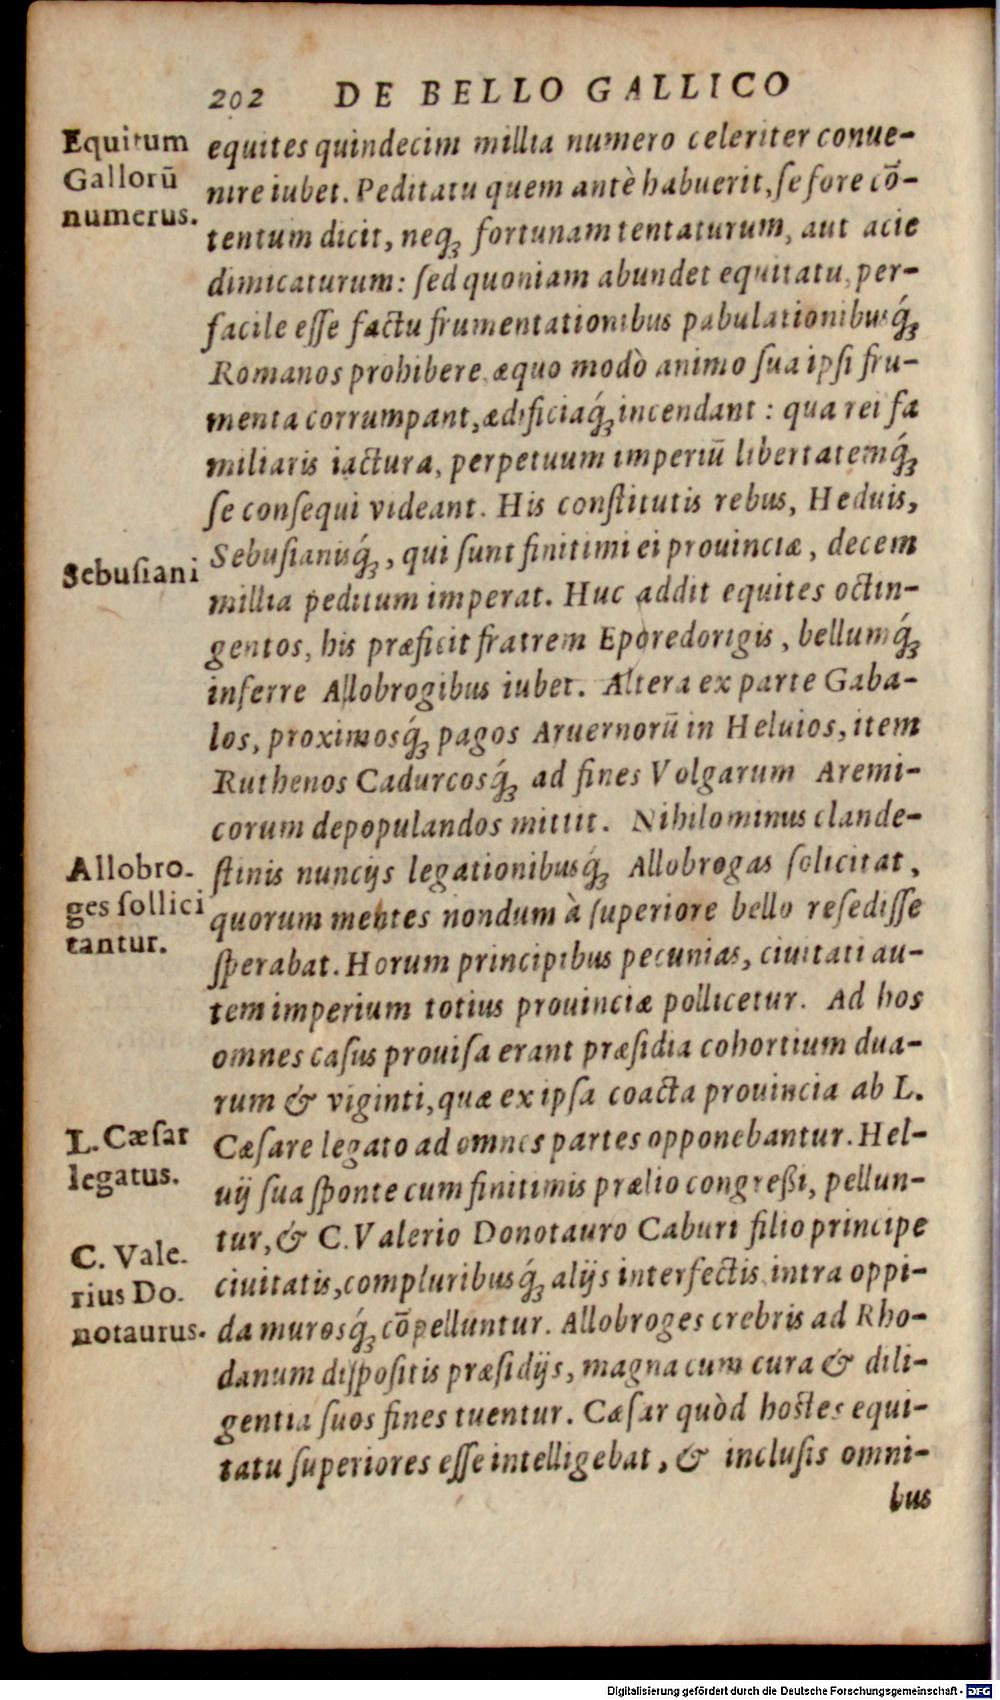 202 DE BELLO GALLICO
Equitum
Gallorū
numerus.
equites quindecim millia numero celeriter conue-
nire iubet. Peditatu quem antè habuerit, ſe fore cō-
tentum dicit, neqꝫ fortunam tentaturum, aut acie
dimicaturum: ſed quoniam abundet equitatu, per-
facile eſſe factu frumentationibus pabulationibusq́ꝫ
Romanos prohibere, æquo modò animo ſua ipſi fru-
menta corrumpant, ædificiaq́ꝫ incendant: qua rei fa
miliaris iactura, perpetuum imperiū libertatemq́ꝫ
ſe conſequi videant. His conſtitutis rebus, Heduis,
Sebuſiani
Sebuſianisq́ꝫ, qui ſunt finitimi ei prouinciæ, decem
millia peditum imperat. Huc addit equites octin-
gentos, his præficit fratrem Eporedorigis, bellumq́ꝫ
inferre Allobrogibus iubet. Altera ex parte Gaba-
los, proximosq́ꝫ pagos Aruernorū in Heluios, item
Ruthenos Cadurcosq́ꝫ ad fines Volgarum Aremi-
corum depopulandos mittit. Nihilominus clande-
Allobro-
ges ſollici
tantur.
ſtinis nuncijs legationibusq́ꝫ Allobrogas ſolicitat,
quorum mentes nondum à ſuperiore bello reſediſſe
ſperabat. Horum principibus pecunias, ciuitati au-
tem imperium totius prouinciæ pollicetur. Ad hos
omnes caſus prouiſa erant præſidia cohortium dua-
rum & viginti, quæ ex ipſa coacta prouincia ab L.
L. Cæſar
legatus.
Cæſare legato ad omnes partes opponebantur. Hel-
uij ſua ſponte cum finitimis prælio congreßi, pellun-
tur, & C. Valerio Donotauro Caburi filio principe
C. Vale-
rius Do-
notaurus.
ciuitatis, compluribusq́ꝫ alijs interfectis, intra oppi-
da murosq́ꝫ cōpelluntur. Allobroges crebris ad Rho-
danum diſpoſitis præſidijs, magna cum cura & dili-
gentia ſuos fines tuentur. Cæſar quòd hoſtes equi-
tatu ſuperiores eſſe intelligebat, & incluſis omni-
bus
Digitalisierung gefördert durch die Deutsche Forschungsgemeinschaft - DFG